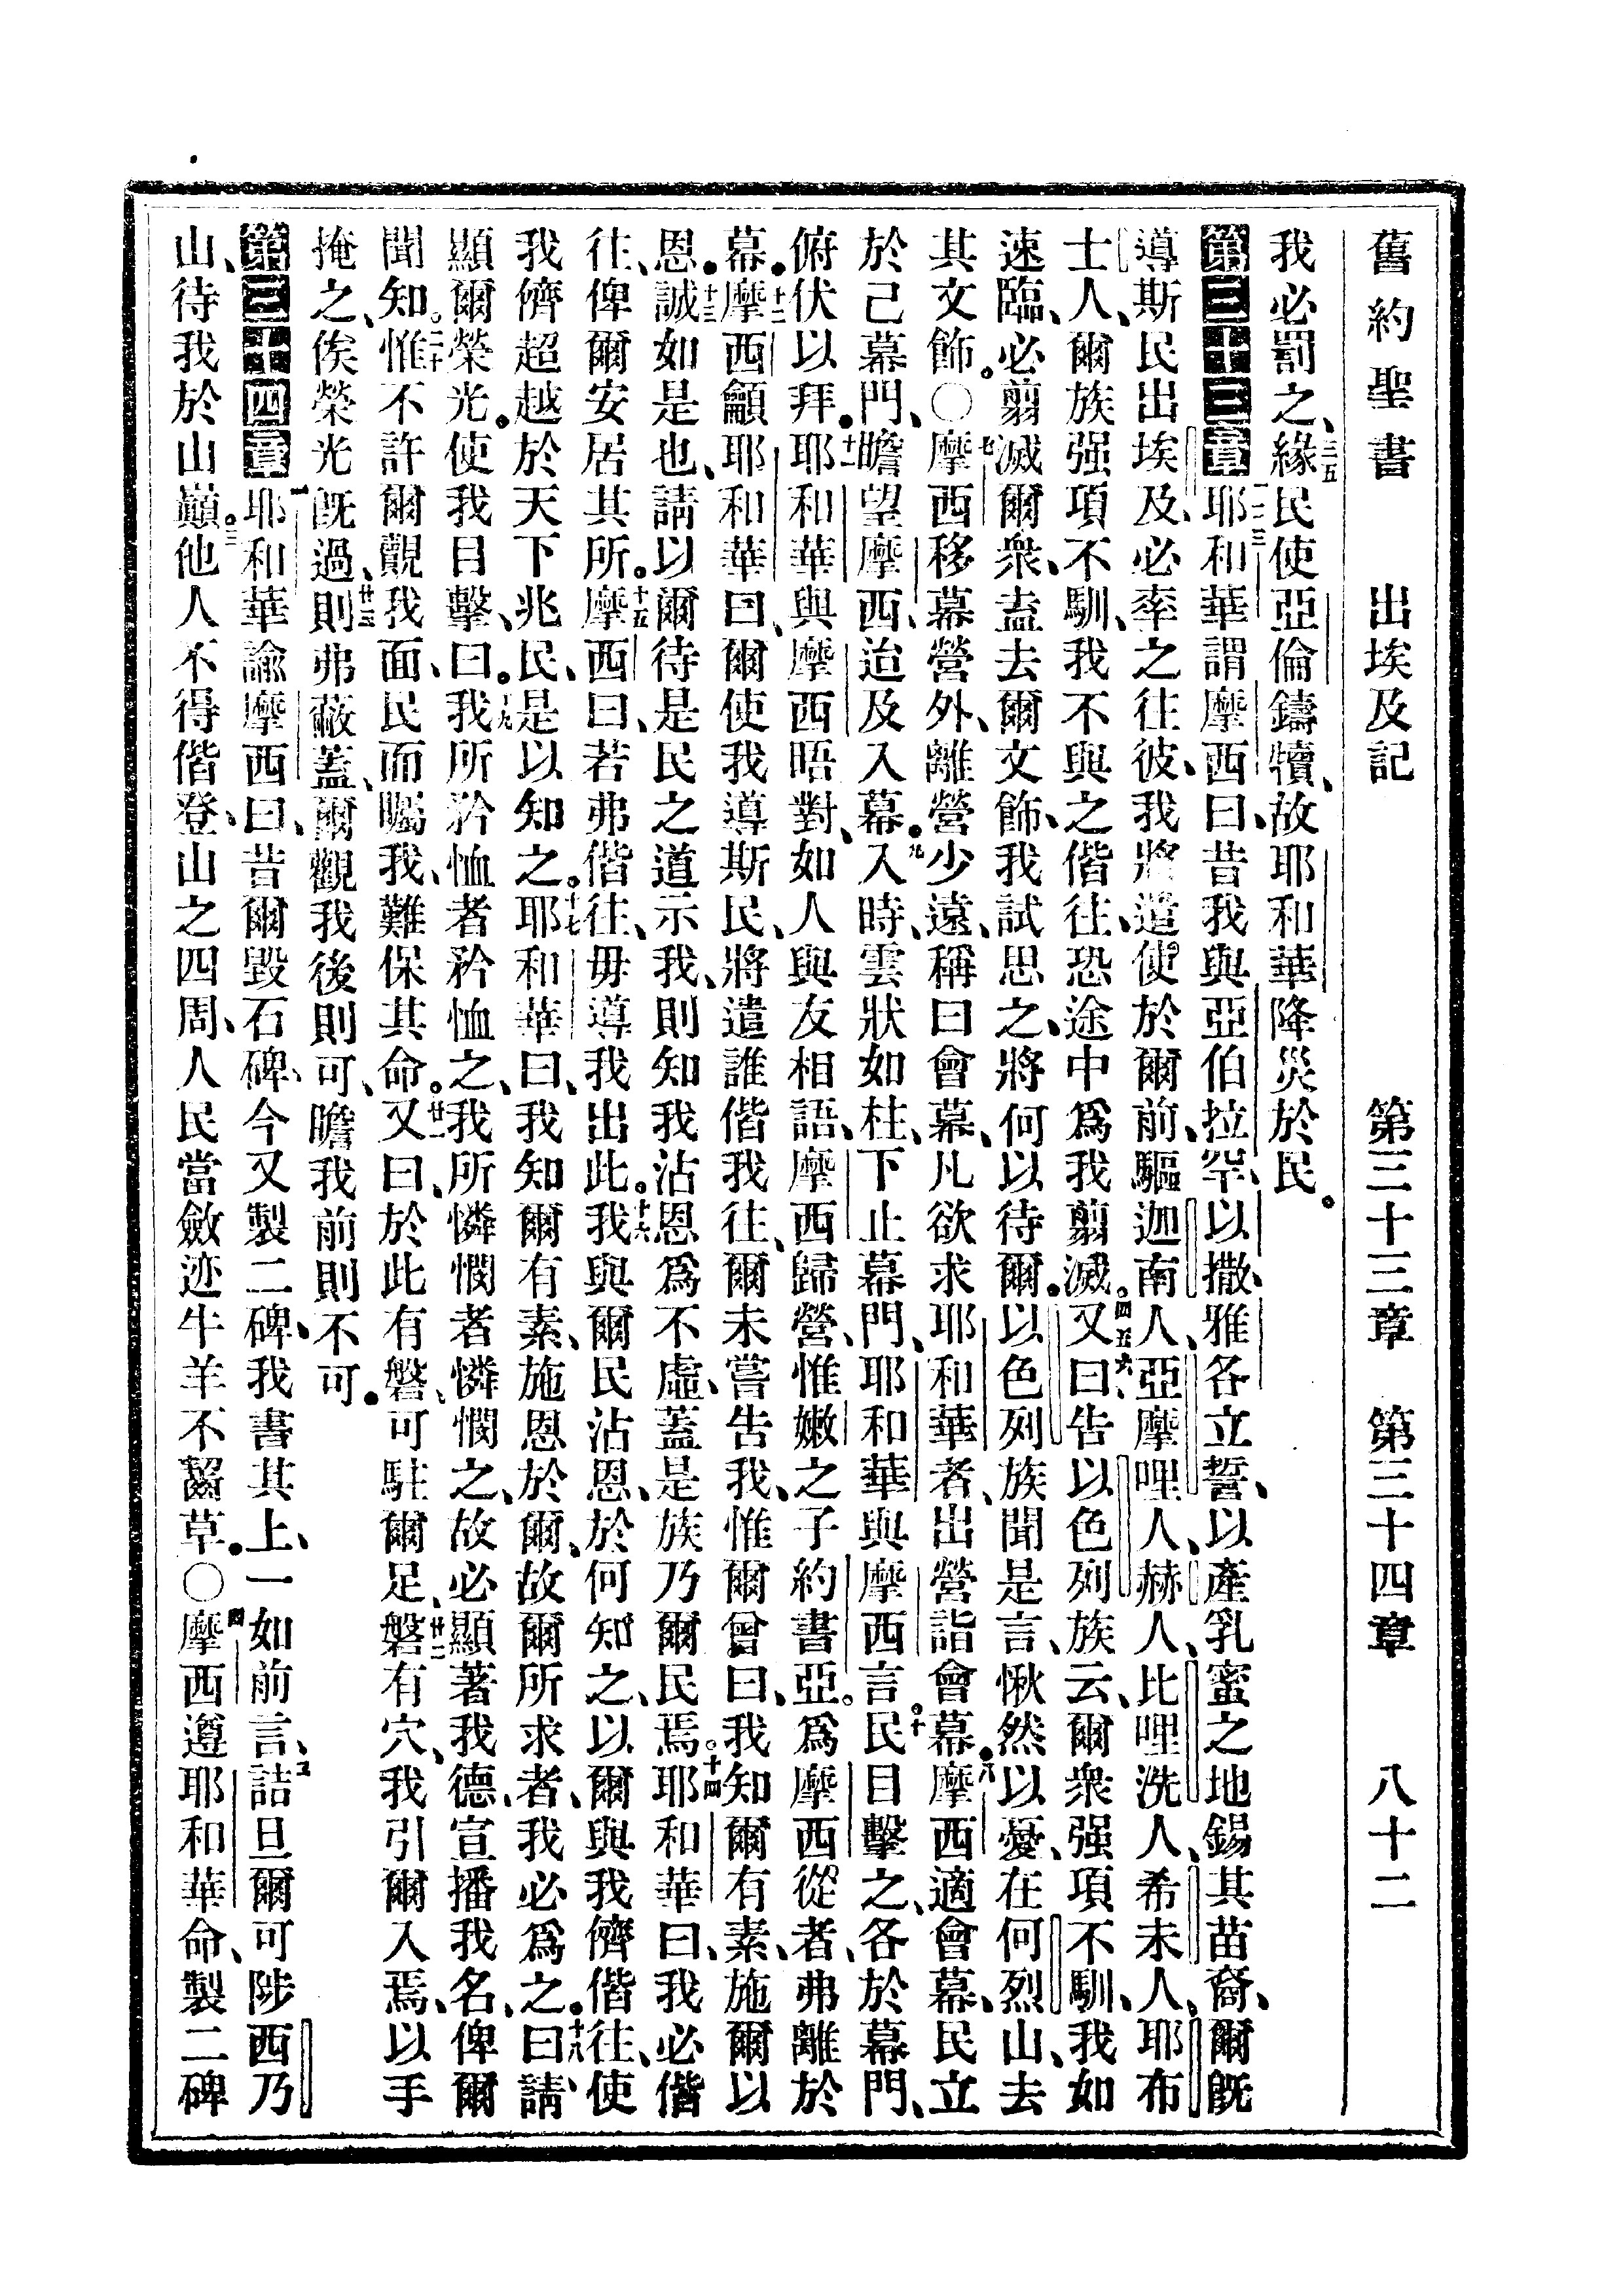 舊約聖書 出埃及記 第三十三章 第三十四章 八十二
我必罰之、三五緣民使亞倫鑄犢、故耶和華降災於民。
第三十三章 一二三耶和華謂摩西曰、昔我與亞伯拉罕、以撒、雅各立誓、以產乳蜜之地錫其苗裔、爾旣
導斯民出埃及、必率之往彼、我將遣使於爾前、驅迦南人、亞摩哩人、赫人、比哩洗人、希未人、耶布
士人、爾族强項不馴、我不與之偕往、恐途中爲我翦滅。四五六又曰、告以色列族云、爾衆强項不馴、我如
速臨、必翦滅爾衆、盍去爾文飾、我試思之、將何以待爾。以色列族聞是言、愀然以憂、在何烈山、去
其文飾。〇七摩西移幕營外、離營少遠、稱曰會幕、凡欲求耶和華者、出營詣會幕。八摩西適會幕、民立
於己幕門、瞻望摩西、迨及入幕。九入時、雲狀如柱、下止幕門、耶和華與摩西言。十民目擊之、各於幕門、
俯伏以拜。十一耶和華與摩西晤對、如人與友相語、摩西歸營、惟嫩之子約書亞。爲摩西從者、弗離於
幕。十二摩西籲耶和華曰、爾使我導斯民、將遣誰偕我往、爾未嘗告我、惟爾曾曰、我知爾有素、施爾以
恩。十三誠如是也、請以爾待是民之道示我、則知我沾恩爲不虛、蓋是族乃爾民焉。十四耶和華曰、我必偕
往、俾爾安居其所。十五摩西曰、若弗偕往、毋導我出此。十六我與爾民沾恩、於何知之、以爾與我儕偕往、使
我儕超越於天下兆民、是以知之。十七耶和華曰、我知爾有素、施恩於爾、故爾所求者、我必爲之。十八曰、請
顯爾榮光。使我目擊、曰。十九我所矜恤者矜恤之、我所憐憫者憐憫之、故必顯著我德、宣播我名、俾爾
聞知。二十惟不許爾觀我面、民而矚我、難保其命。廿一又曰、於此有磐、可駐爾足、廿二磐有穴、我引爾入焉、以手
掩之、俟榮光旣過、廿三則弗蔽蓋、爾觀我後則可、瞻我前則不可。
第三十四章 一耶和華諭摩西曰、昔爾毀石碑、今又製二碑、我書其上、一如前言、二詰旦爾可陟西乃
山、待我於山巔。三他人不得偕登、山之四周、人民當斂迹、牛羊不齧草。〇四摩西遵耶和華命、製二碑